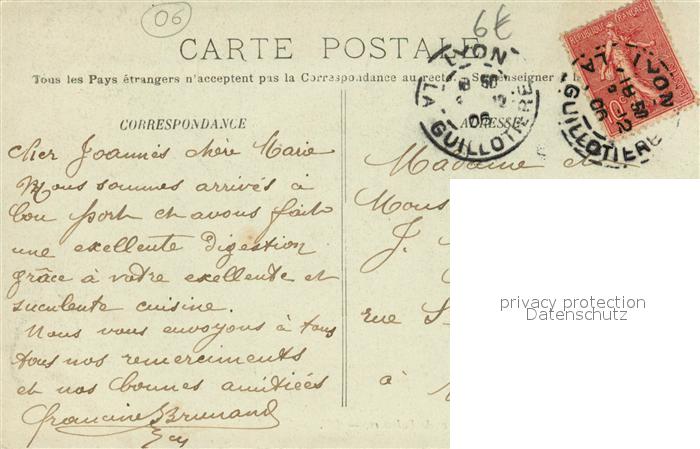 06
6€
CARTE POSTALE
Tous les Pays étrangers n'acceptent pas la Correspondance au recto. Se renseigner
CORRESPONDANCE
Cher Joannès chère Marie
Nous sommes arrivés à
bon port et avons fait
une exellente digestion
grâce à votre exellente et
succulente cuisine.
Nous vous envoyons à tous
tous nos remerciments
et nos bonnes amitiées
Francine Brunand
ADRESSE
Madame et
Mous
J.
rue S
à
LYON
LA GUILLOTIERE
06
RÉPUBLIQUE FRANÇAISE
10
LYON
12
06
LA GUILLOTIERE
privacy protection
Datenschutz